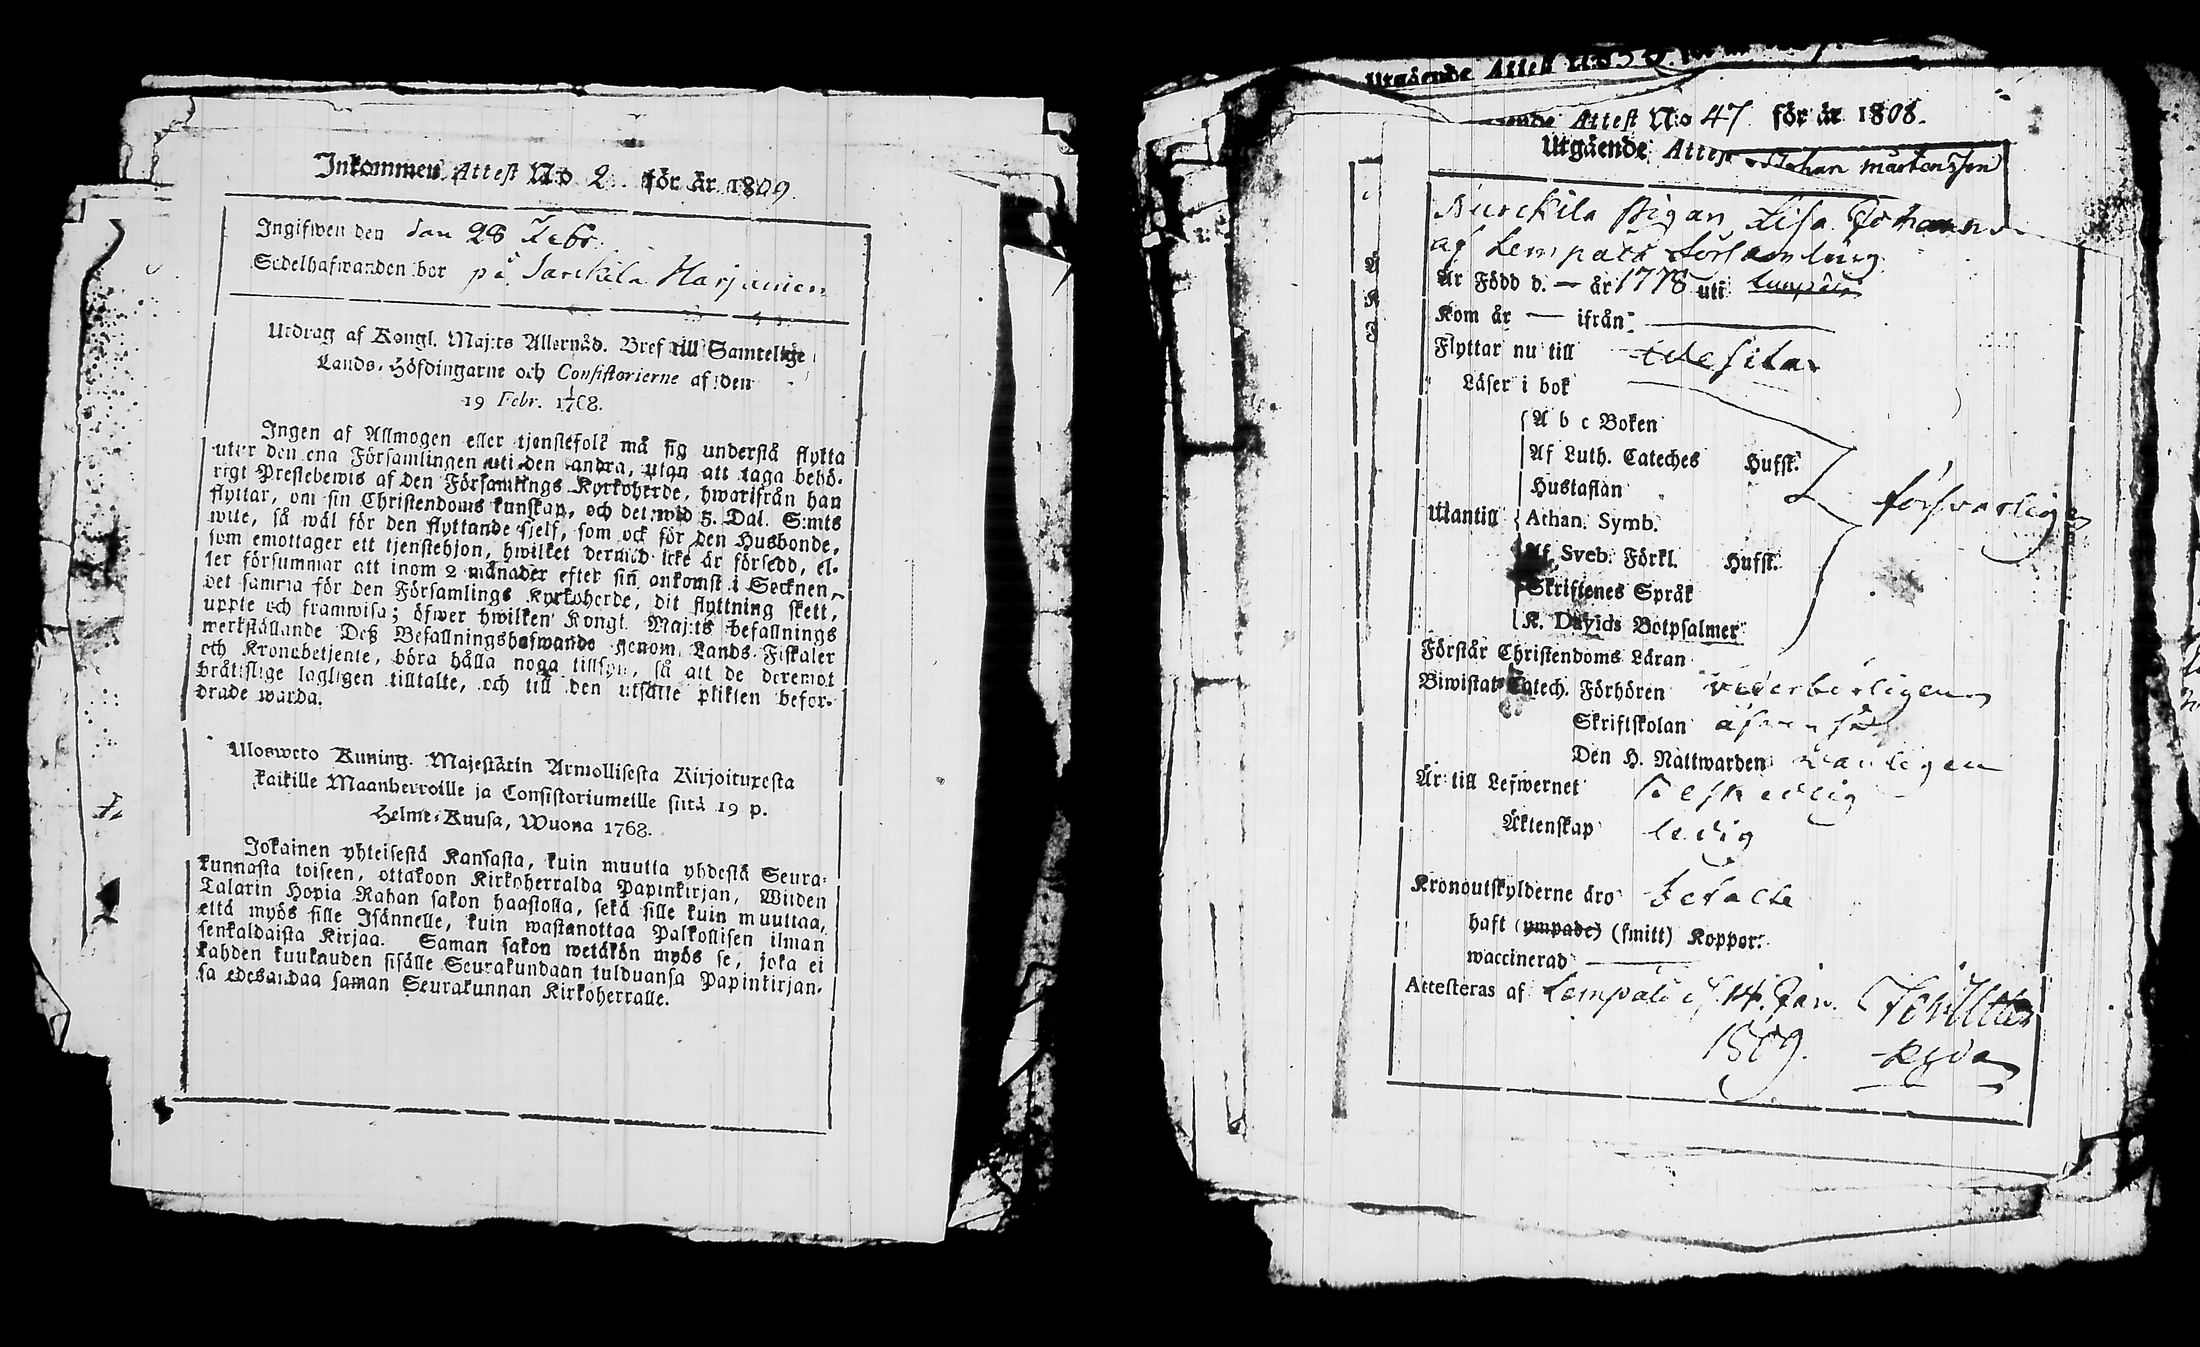 Inkommen Attest N:o 2. för år 1809.
Ingifwen den den 28 Febr.
Sedelhafwanden bor på Sarckila Harjunien
Utdrag af Kongl. Maj:ts Allernåd. Bref till Samtelige
Lands-Höfdingarne och Consistorierne af den
19 Febr. 1768.
Ingen af Allmogen eller tjenstefolk må sig understå flytta
utur den ena Församlingen uti den andra, utan att taga behö-
rigt Prestebewis af den Församlings Kyrkoherde, hwarifrån han
flyttar, om sin Christendoms kunskap, och det wid 5. Dal. S:mts
wite, så wäl för den flyttande sjelf, som ock för den Husbonde,
som emottager ett tjenstehjon, hwilket dermed icke är försedd, el-
ler försummar att inom 2 månader efter sin ankomst i Secknen,
det samma för den Församlings Kyrkoherde, dit flyttning skett,
uppte och framwisa; öfwer hwilken Kongl. Maj:ts befallnings
werkställande Deß Befallningshafwande genom Lands-Fiskaler
och Kronobetjente, böra hålla noga tillsyn, så att de deremot
bråttslige lagligen tilltalte, och till den utsatte plikten befor-
drade warda.
Uloswcto Kuning. Majestätin Armollisesta Kirjoituxesta
kaikille Maanherroille ja Consistoriumeille siitä 19 p.
Helme-Kuusa, Wuona 1768.
Jokainen yhteisestä Kansasta, kuin muutta yhdestä Seura-
kunnasta toiseen, ottakoon Kirkoherralda Papinkirjan, Wiiden
Talarin Hopia Rahan sakon haastolla, sekä sille kuin muuttaa,
että myös sille Isännelle, kuin wastanottaa Palkollisen ilman
senkaldaista Kirjaa. Saman sakon wetäkön myös se, joka ei
kahden kuukauden sisälle Seurakundaan tulduansa Papinkirjan-
sa edesandaa saman Seurakunnan Kirkoherralle.
Utgående Attest N:o
Attest N:o 47 för år 1808.
Utgående Attest Johan Mårtensson
Nurckila Pigan Lisa Johans
af Lempälä Församling
Är Född d. — år 1778 uti Lempälä
Kom år — ifrån —
Flyttar nu till Wesila
Läser i bok
A b c Boken
Af Luth. Cateches Hufst.
Hustaflan
Utantill Athan. Symb.
Af Sveb. Förkl. Hufst.
Skriftenes Språk
K. Davids Botpsalmer
försvarligen
Förstår Christendoms Läran
Biwistat Catech. Förhören vederbörligen
Skriftskolan äfven så
Den H. Nattwarden vanligen
Är till Lefwernet beskedlig
Äktenskap ledig
Kronoutskylderne äro betalte
haft (ympade) (smitt) Koppor.
waccinerad —
Attesteras af Lempälä d. 14. Jan.
1809.